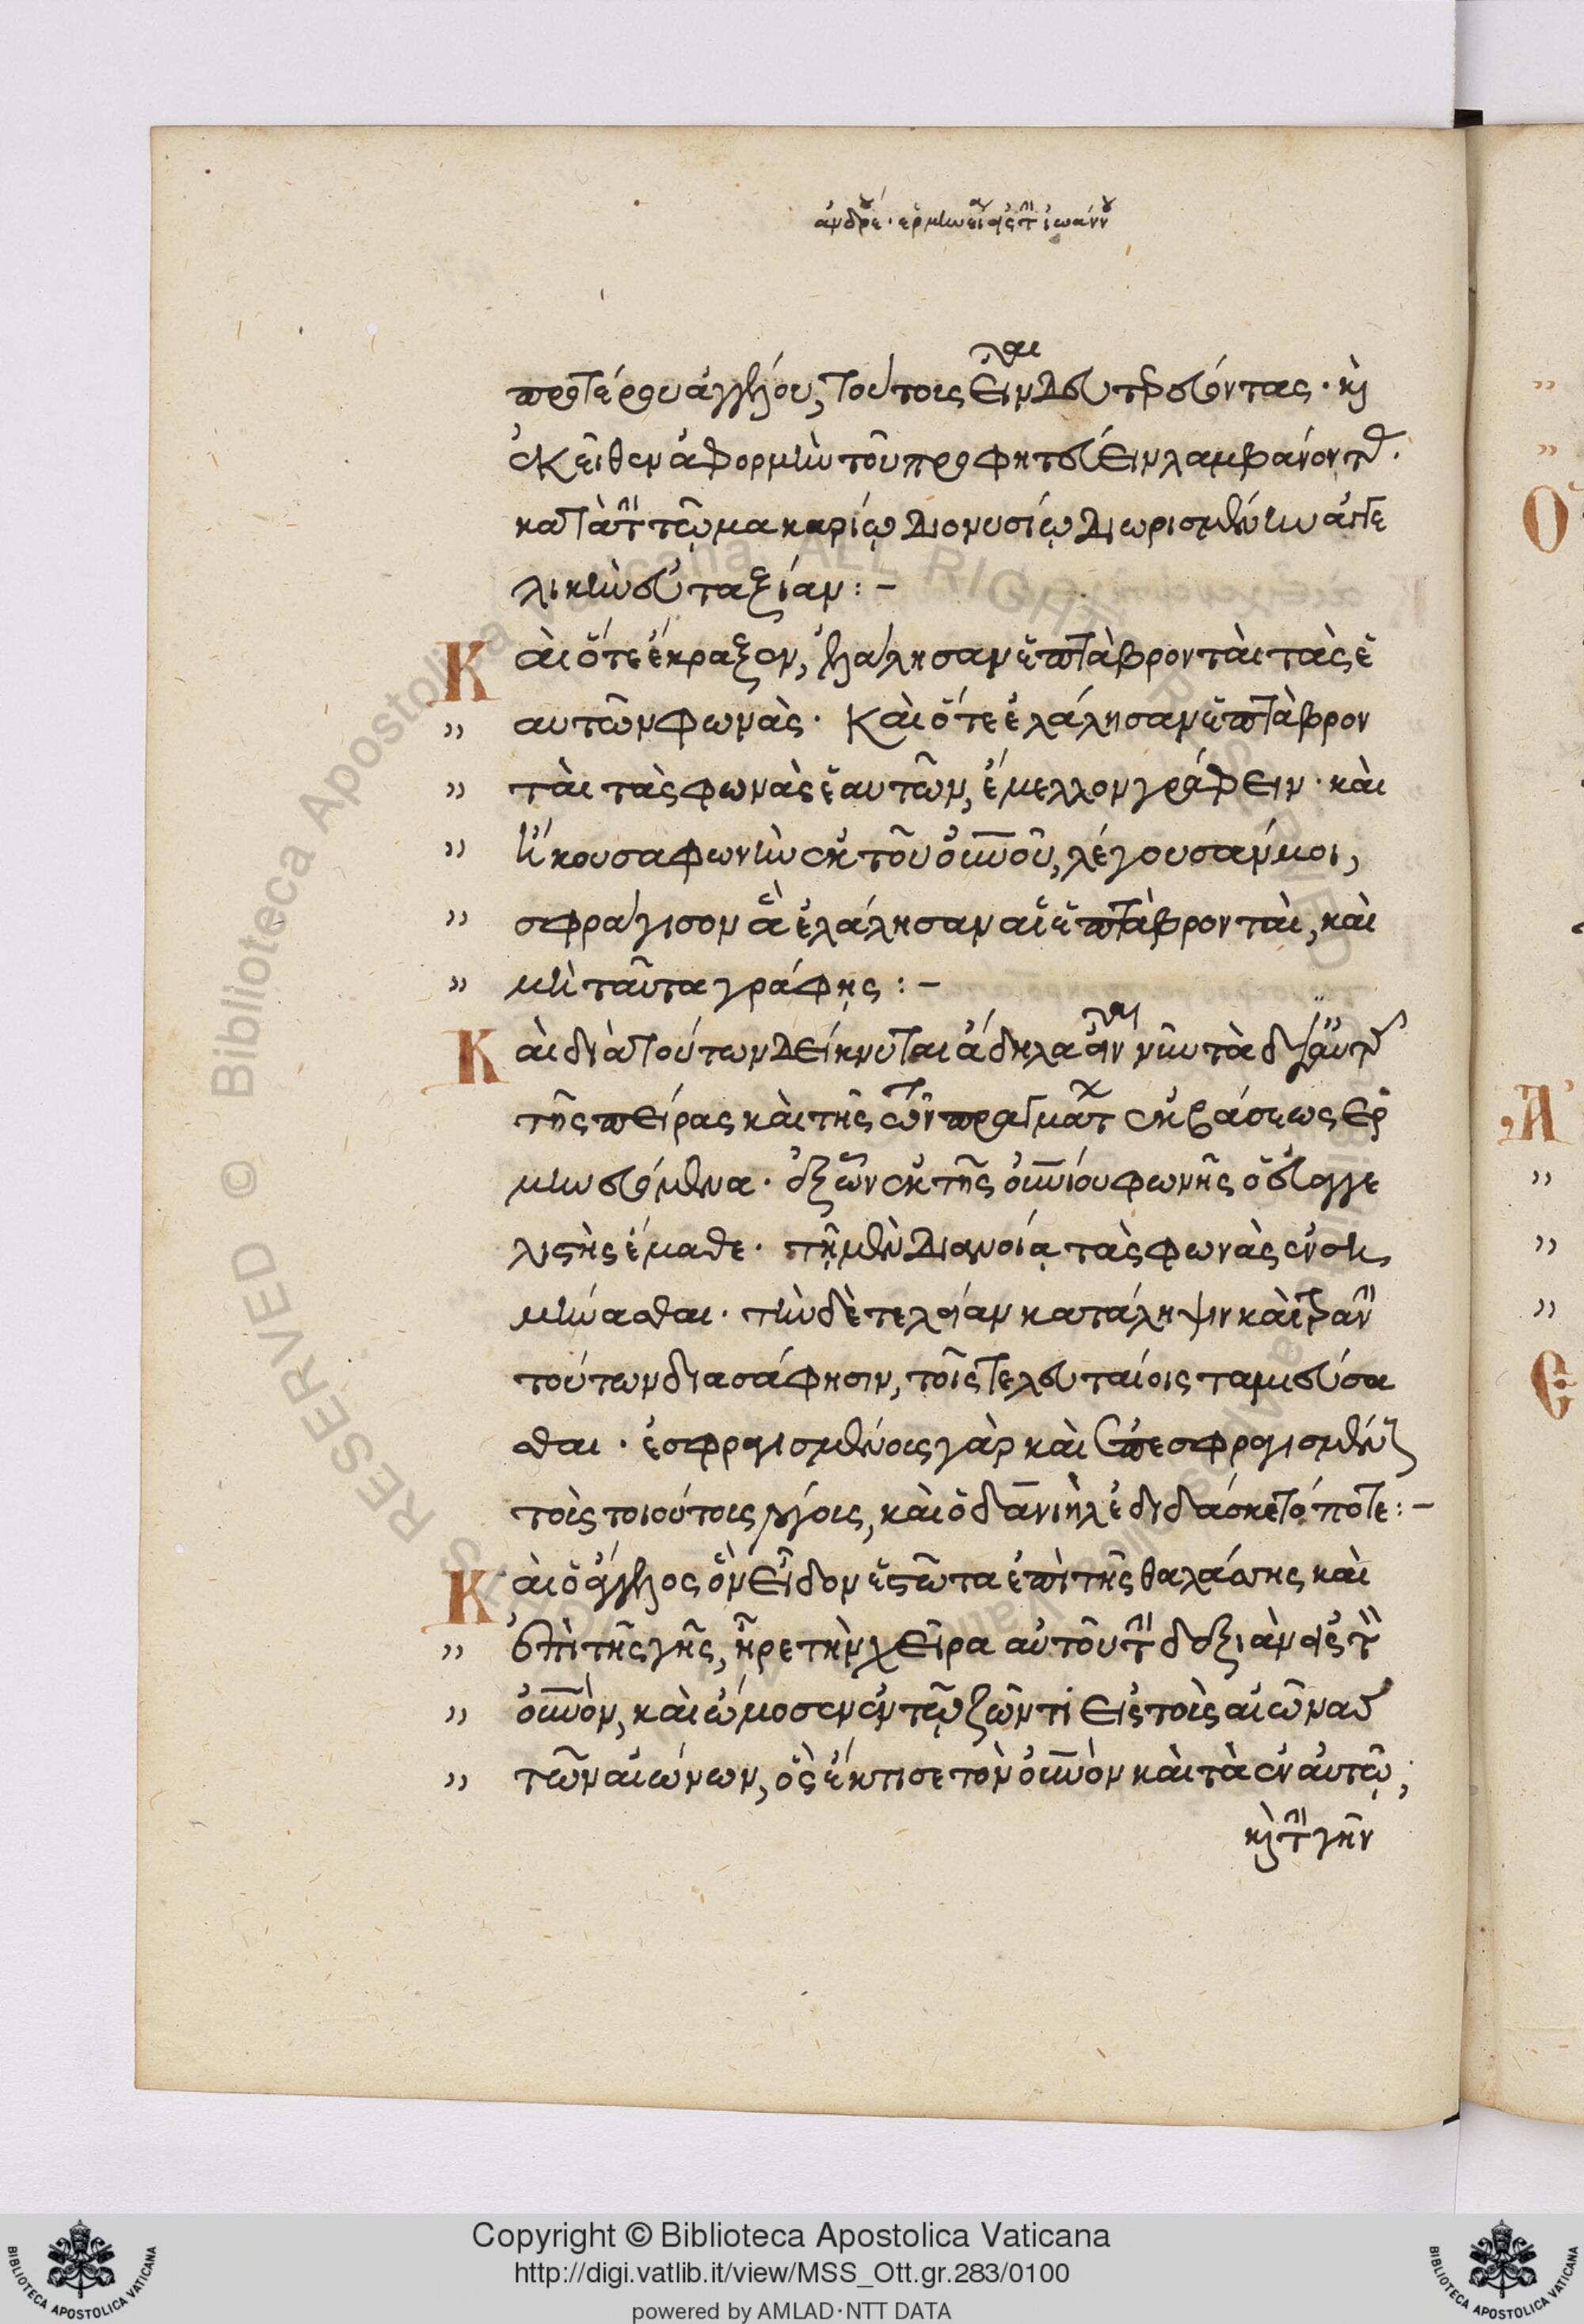 ἀνδρέου ἑρμηνεία εἰς τὴν ἰωάννου
προτέρου ἀγγέλου, τούτοις εἶναι δευτερεύοντας · καὶ
ἐκεῖθεν ἀφορμὴν τοῦ προφητεύειν λαμβάνοντας ·
κατὰ τὴν τῷ μακαρίῳ Διονυσίῳ Διωρισμένην ἀγγε
λικὴν εὐταξίαν : –
Και ὅτε ἔκραξεν, ἐλάλησαν ἑπτὰ βρονταὶ τὰς ἑ
αυτῶν φωνὰς · Καὶ ὅτε ἐλάλησαν ἑπτὰ βρον
ταὶ τὰς φωνὰς ἑαυτῶν, ἔμελλον γράφειν · καὶ
ἤκουσα φωνὴν ἐκ τοῦ οὐνοῦ, λέγουσάν μοι,
σφράγισον ἃ ἐλάλησαν αἱ ἑπτὰ βρονταὶ, καὶ
μὴ ταῦτα γράφῃς : –
Και διὰ τούτων Δείκνυται ἄδηλα εἶναι νῦν τὰ δι᾽ αὐτῆς
τῆς πείρας καὶ τῆς τῶν πραγμάτων ἐκβάσεως ἑρ
μηνευόμενα · ἐξ ὧν ἐκ τῆς οὐνίου φωνῆς ὁ εὐαγγε
λιστὴς ἔμαθε · τῇ μὲν Διανοίᾳ τὰς φωνὰς ἐνση
μήνασθαι · τὴν δὲ τελείαν κατάληψιν καὶ τρανὴν
τούτων διασάφησιν, τοῖς τελευταίοις ταμιεύσα
σθαι · ἐσφραγισμένοις γὰρ καὶ ἐπεσφραγισμένοις
τοῖς τοιούτοις λόγοις, καὶ ὁ δανιὴλ ἐδιδάσκετό ποτε : –
Και ὁ ἄγγελος ὃν εἶδον ἑστῶτα ἐπὶ τῆς θαλάσσης καὶ
ἐπὶ τῆς γῆς, ἦρε τὴν χεῖρα αὐτοῦ τὴν δεξιὰν εἰς τὸν
οὐνὸν, καὶ ὤμοσεν ἐν τῷ ζῶντι εἰς τοὺς αἰῶνας
τῶν αἰώνων, ὃς ἔκτισε τὸν οὐνὸν καὶ τὰ ἐν αὐτῷ,
καὶ τὴν γῆν
Copyright © Biblioteca Apostolica Vaticana
http://digi.vatlib.it/view/MSS_Ott.gr.283/0100
powered by AMLAD·NTT DATA